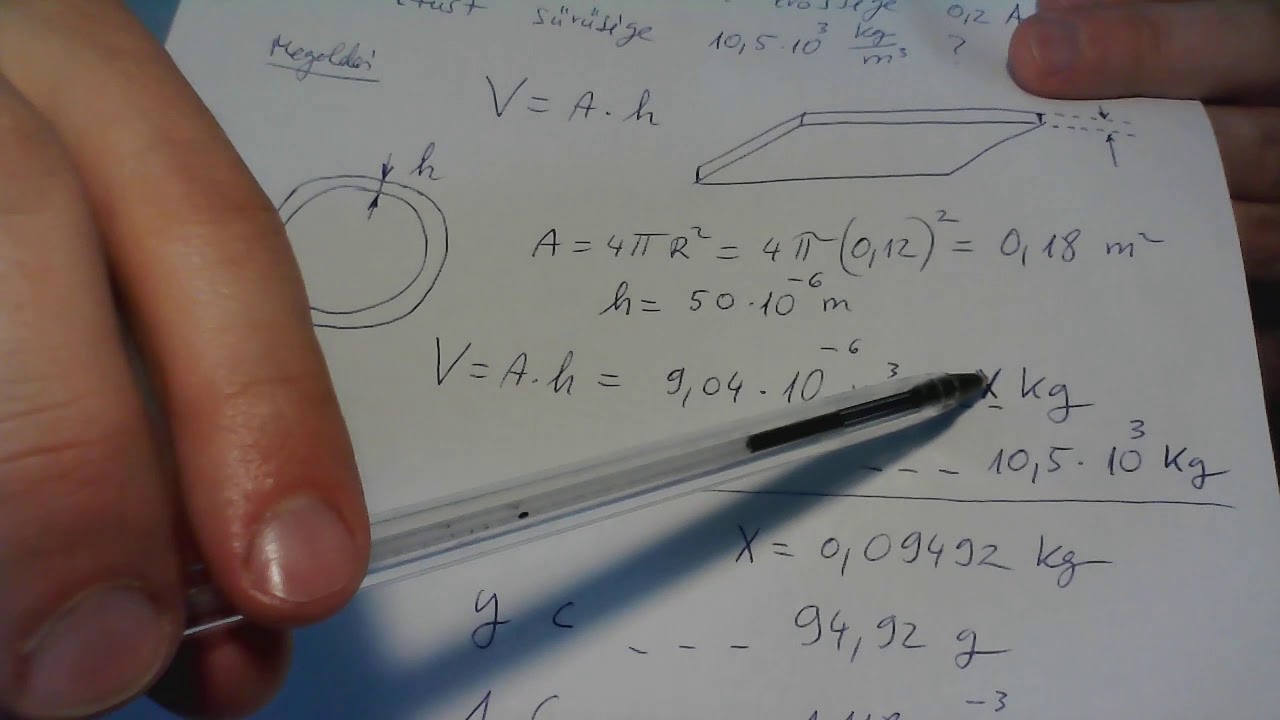 sűrűsége 10,5·10³ kg/m³ ?
0,2 A
Megoldás
V = A·h
h
A = 4πR² = 4π(0,12)² = 0,18 m²
h = 50·10⁻⁶ m
V = A·h = 9,04·10⁻⁶ ³ X kg
--- 10,5·10³ kg
X = 0,09492 kg
y C
--- 94,92 g
1 C
⁻³